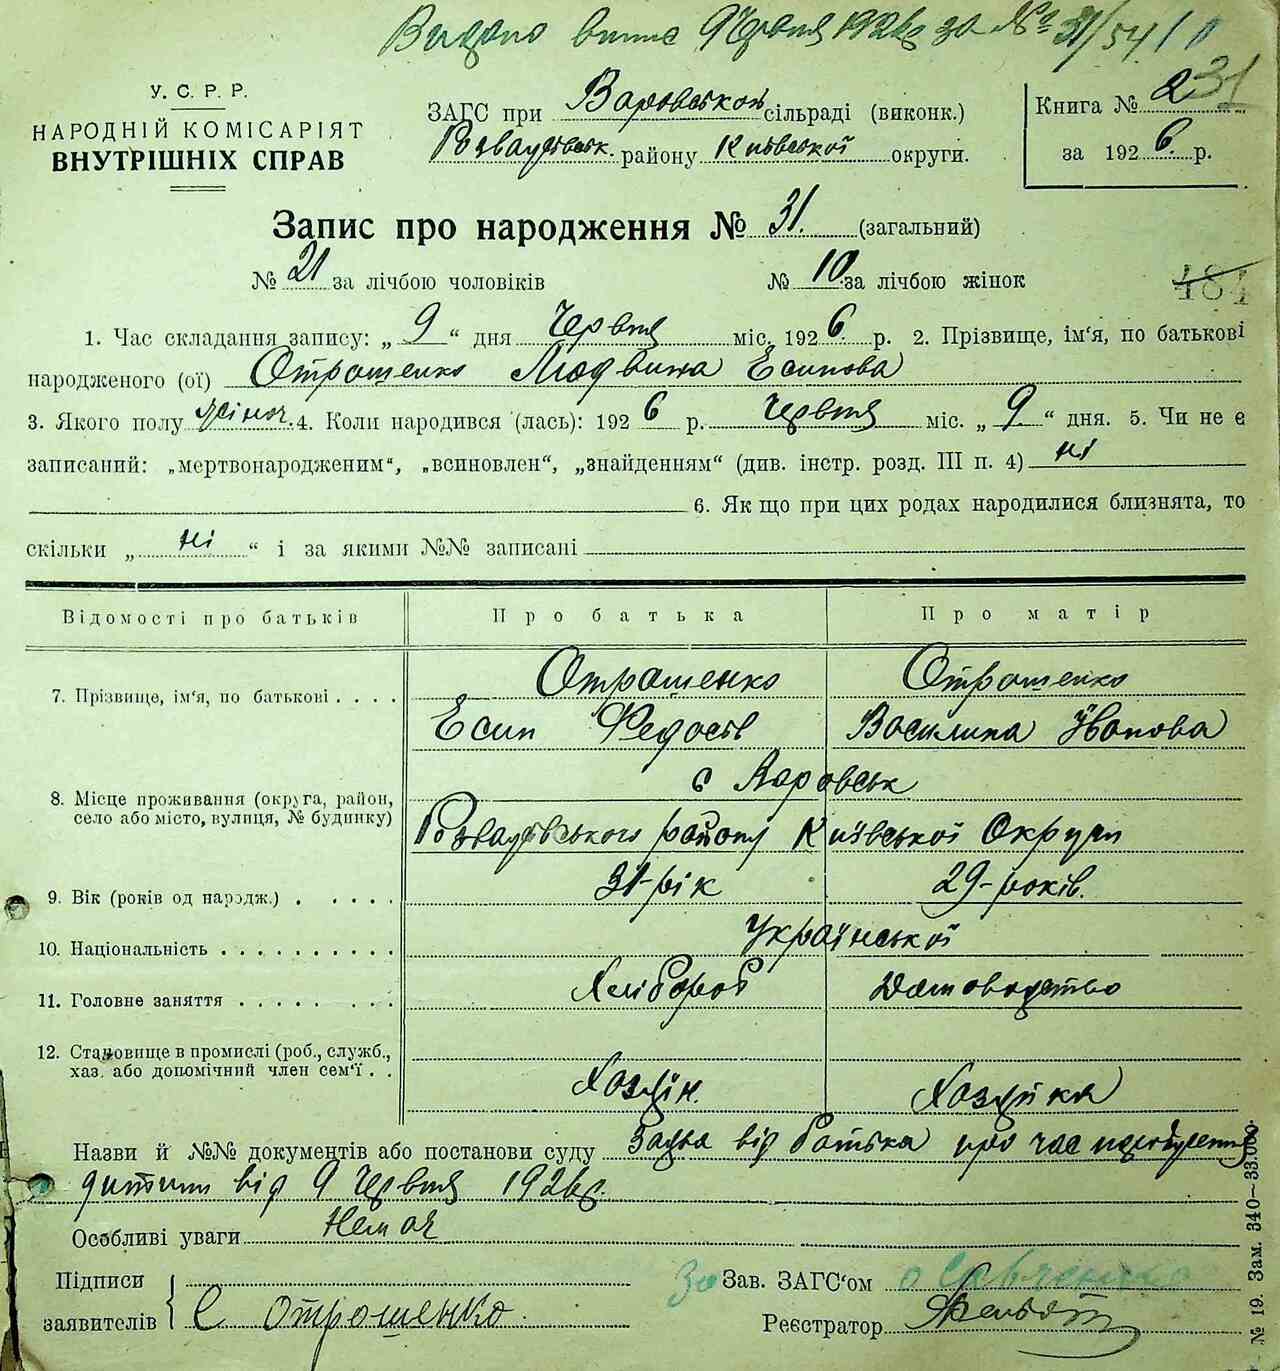 Видано випис 9 Червня 1926 р за № 31/54
У. С. Р. Р.
НАРОДНІЙ КОМІСАРІЯТ
ВНУТРІШНІХ СПРАВ
ЗАГС при Варовській сільраді (виконк.)
Розважівськ. району Київської округи.
Книга № 2
за 1926 р.
231
Запис про народження № 31. (загальний)
№ 21 за лічбою чоловіків № 10 за лічбою жінок
484
1. Час складання запису: „ 9 “ дня Червня міс. 1926 р. 2. Прізвище, ім‘я, по батькові
народженого (ої) Отрошенко Людвина Есипова
3. Якого полу жіноч. 4. Коли народився (лась): 1926 р. Червня міс. „ 9 “ дня. 5. Чи не є
записаний: „мертвонародженим“, „всиновлен“, „знайденням“ (див. інстр. розд. III п. 4) ні
6. Як що при цих родах народилися близнята, то
скільки „ ні “ і за якими №№ записані
Відомості про батьків Про батька Про матір
7. Прізвище, ім‘я, по батькові . . . . Отрошенко Отрошенко
Есип Федосів Василина Івонова
8. Місце проживання (округа, район, село або місто, вулиця, № будинку) с Варовськ
Розважівського району Київської Округи
9. Вік (років од народж.) . . . . . 31-рік 29-років.
10. Національність . . . . . . . . . . Української
11. Головне заняття . . . . . . . . Хлібороб Домоводство
12. Становище в промислі (роб., служб., хаз. або допомічний член сем‘ї . . Хозяїн. Хозяйка
Назви й №№ документів або постанови суду Заява від батька про час народження
дитини від 9 Червня 1926 р.
Особливі уваги Немає
Підписи заявителів Е Отрошенко
За Зав. ЗАГС‘ом
Реєстратор
№ 19. Зам. 340—33.000.